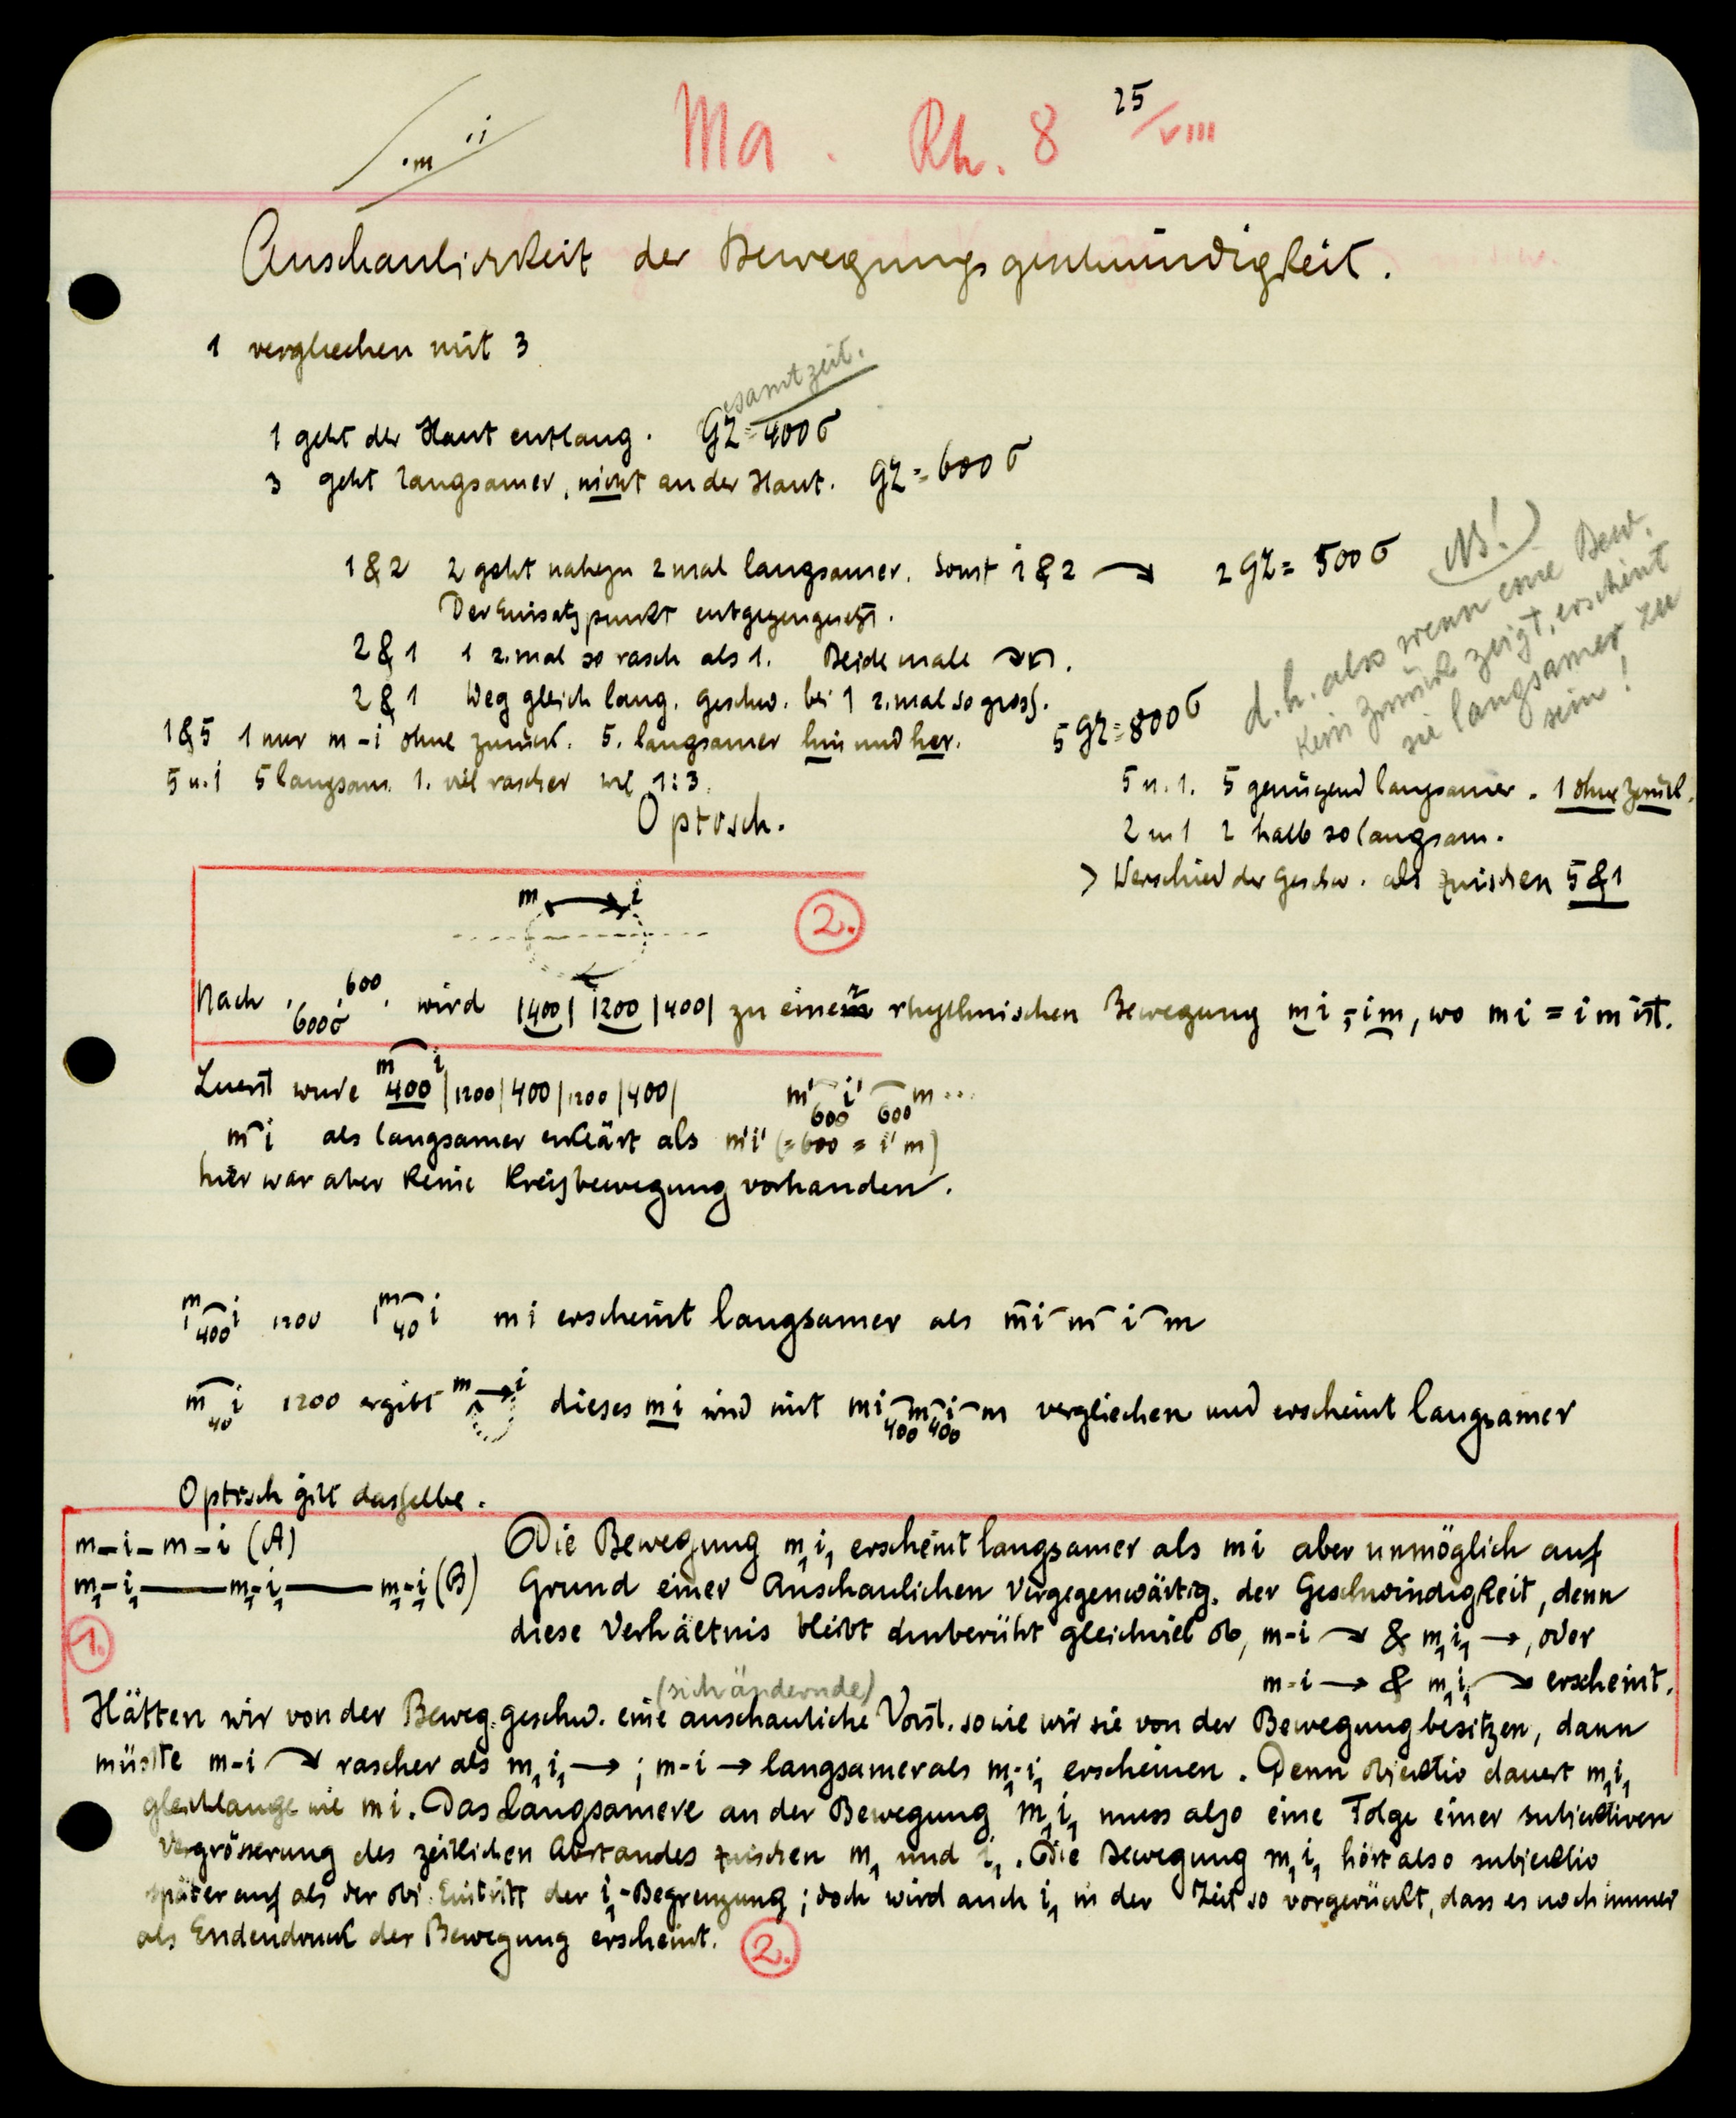 .m ii
Ma. Rh. 8 25/VIII
Anschaulichkeit der Bewegungsgeschwindigkeit.
1 vergliechen mit 3
esamtzeit.
1 geht der Haut entlang. GZ = 400 σ
3 geht langsamer, nicht an der Haut. GZ = 600 σ
1 & 2 2 geht nahezu 2 mal langsamer. Sonst 1 & 2 → 2 GZ = 500 σ
Der Einsatzpunkt entgegengesetzt.
2 & 1 1 2.mal so rasch als 1. Beide male
2 & 1 Weg gleich lang. Geschw. bei 1 2.mal so gross.
NB!
d.h. also wenn eine Bew.
kein zurück zeigt, erscheint
sie langsamer zu
sein!
1 & 5 1 nur m – i ohne zurück. 5. langsamer hin und her. 5 GZ = 800 σ
5 u. 1 5 langsam. 1. viel rascher 1:3.
5 u. 1. 5 genügend langsamer. 1 ohne zurück.
Optisch.
2 u 1 2 halb so langsam.
> Verschied der Geschw. als zwischen 5 & 1
m → i
2.
Nach 600σ 600 wird |400| 1200 |400| zu einer rhythmischen Bewegung mi, im, wo mi = im ist.
Zuerst wurde m 400 i |1200|400|1200|400| m' i' m ...
600 600
m i als langsamer erklärt als m'i' (=600 = i'm)
hier war aber keine Kreisbewegung vorhanden.
m i 400 1200 m i 40 mi erscheint langsamer als mi m i m
m i 40 1200 ergibt m → i dieses mi wird mit mi m i m vergliechen und erscheint langsamer
400 400
Optisch gilt dasselbe.
m – i – m – i (A)
m₁ – i₁ —— m₁ – i₁ —— m₁ – i₁ (B)
1.
Die Bewegung m₁i₁ erscheint langsamer als mi aber unmöglich auf
Grund einer Anschaulichen Vergegenwärtig. der Geschwindigkeit, denn
diese Verhältnis bleibt unberührt gleichviel ob, m-i ↷ & m₁i₁ →, oder
m-i → & m₁i₁ ↷ erscheint.
(sich ändernde)
Hätten wir von der Beweg.geschw. eine anschauliche Vorst. so wie wir sie von der Bewegung besitzen, dann
müsste m-i ↷ rascher als m₁i₁ → ; m-i → langsamer als m₁-i₁ erscheinen. Denn objektiv dauert m₁i₁
gleichlange wie mi. Das langsamere an der Bewegung m₁i₁ muss also eine Folge einer subjektiven
Vergrösserung des zeitlichen Abstandes zwischen m₁ und i₁. Die Bewegung m₁i₁ hört also subjektiv
später auf als der obj. Eintritt der i₁-Begrenzung; doch wird auch i₁ in der Zeit so vorgerückt, dass es noch immer
als Endendruck der Bewegung erscheint. 2.